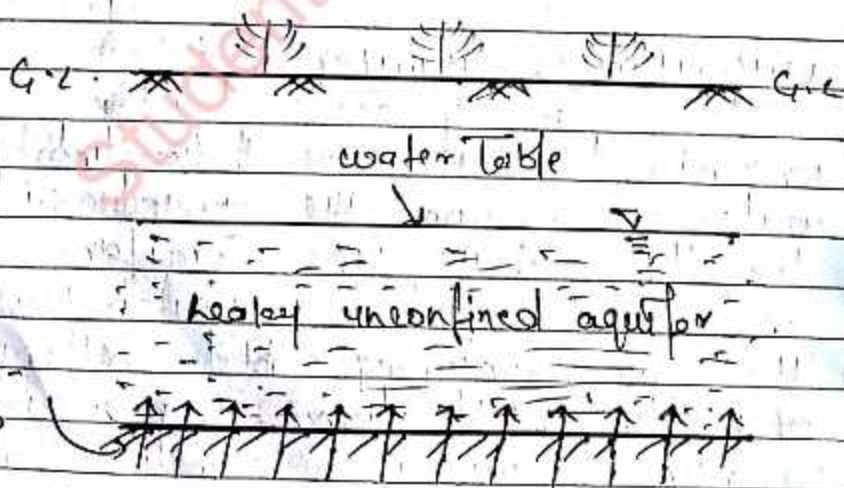 Student
G.L. G.L
water Table
leaky unconfined aquifer